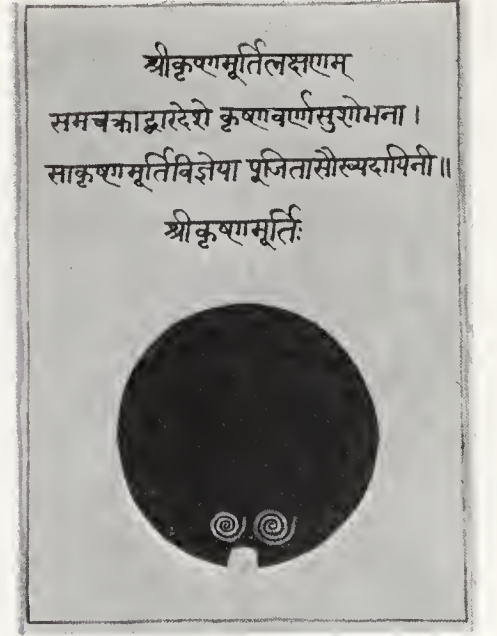 श्रीकृष्णमूर्तिलक्षणम्
समचक्राद्वारदेशे कृष्णवर्णसुशोभना।
साकृष्णमूर्तिविज्ञेया पूजितासौख्यदायिनी॥
श्रीकृष्णमूर्तिः